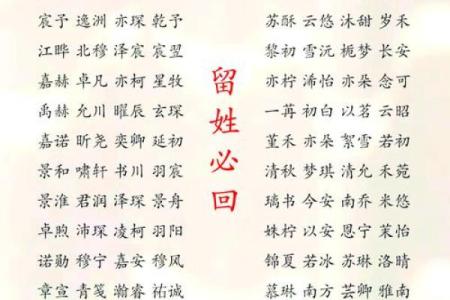 宸予 逸洲 亦琛 乾予
江晔 北穆 泽宸 宸翌
嘉赫 卓凡 亦柯 星牧
禹赫 允川 曜辰 玄琛
嘉诺 昕尧 奕卿 延初
景和 啸轩 书川 羽宸
景淮 君润 泽琛 景舟
卓煦 沛琛 凌柯 羽阳
诺勋 穆宁 嘉安 穆风
章宣 青笺 瀚睿 祐诚
留姓必回
苏酥 云悠 沐甜 岁禾
黎初 雪沅 栀梦 长安
亦柠 浠怡 亦朵 念可
一苒 初白 以茗 云昭
堇禾 亦朵 絮雪 若初
清秋 梦琪 清允 禾菀
璃书 今安 南乔 米悠
姝柠 以安 恩宁 茉怡
锦夏 若冰 苏琳 洛晴
慕琳 南方 姿卿 雅南